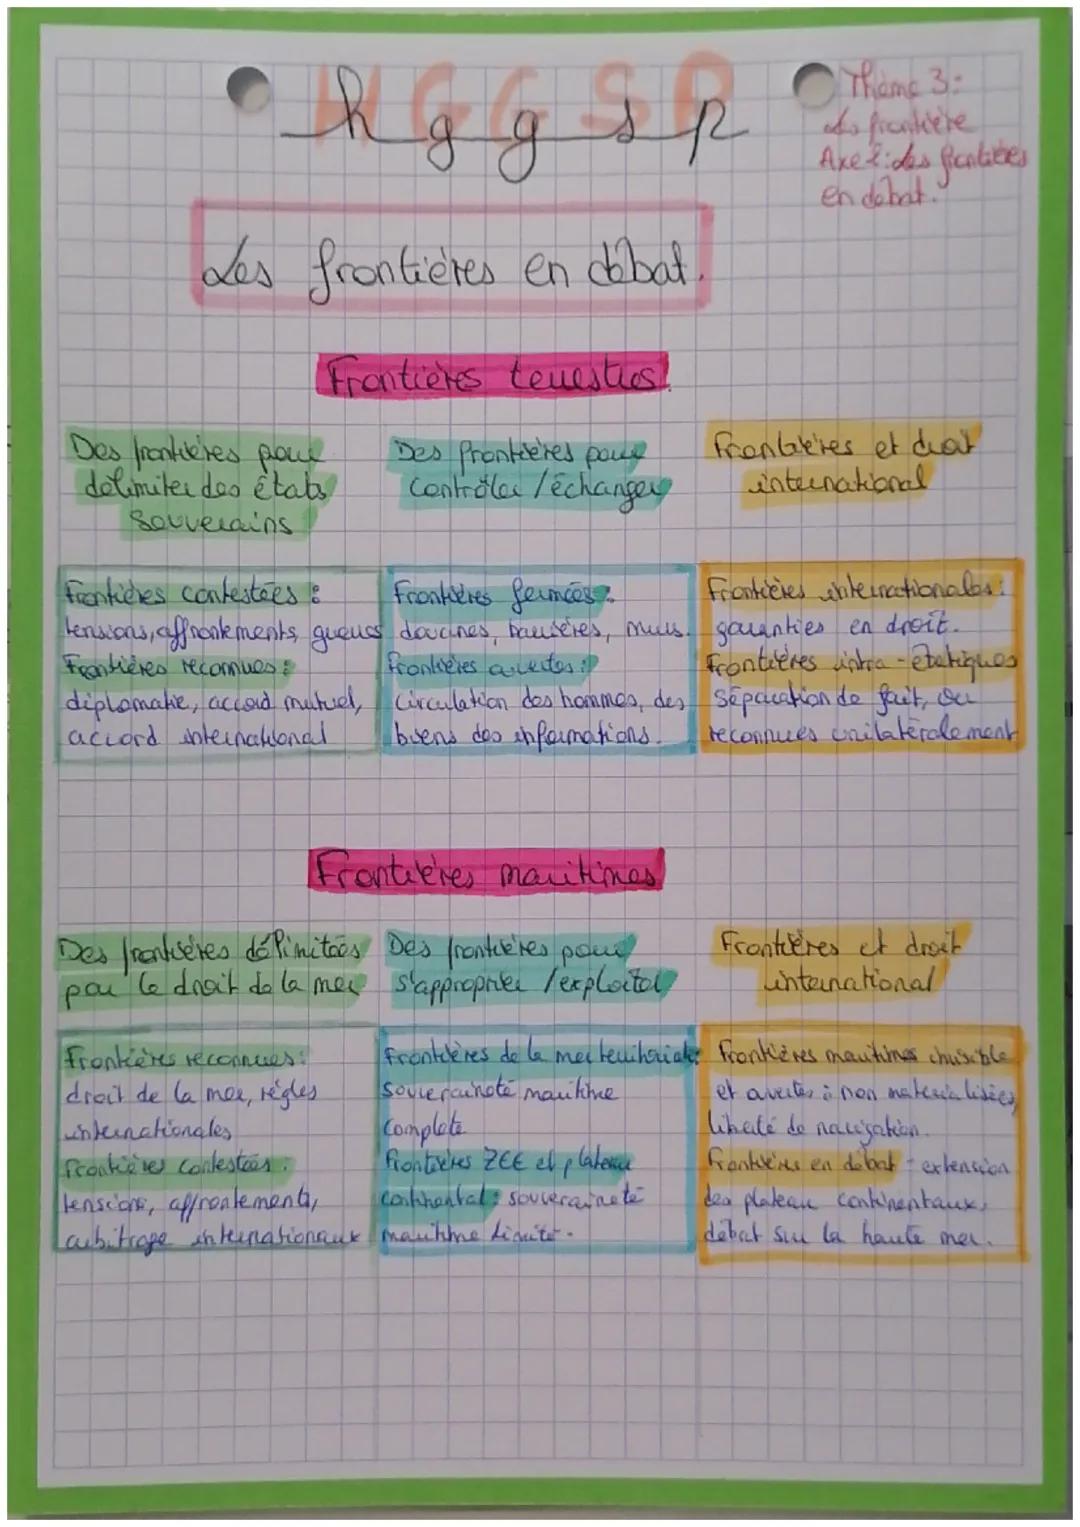 HGGSP
hggsp
Thème 3:
les frontière
Axe 2: des frontières
en débat.
Les frontières en débat.
Frontières terrestres.
Des frontières pour
délimiter des états
souverains
Frontières contestées :
tensions, affrontements, guerres
Frontières reconnues :
diplomatie, accord mutuel,
accord international
Des frontières pour
contrôler / échanger
Frontières fermées :
douanes, barrières, murs.
frontières ouvertes :
circulation des hommes, des
biens des informations.
Frontières et droit
international
Frontières internationales :
garanties en droit.
Frontières intra-étatiques
séparation de fait, ou
reconnues unilatéralement
Frontières maritimes
Des frontières délimitées
par le droit de la mer
Frontières reconnues :
droit de la mer, règles
internationales
frontières contestées :
tensions, affrontements,
arbitrage internationaux
Des frontières pour
s'approprier / exploiter
Frontières de la mer territoriale :
souveraineté maritime
complète
frontières ZEE et plateau
continental : souveraineté
maritime limité.
Frontières et droit
international
Frontières maritimes invisible
et ouvertes : non matérialisées,
liberté de navigation.
frontières en débat : extension
des plateau continentaux,
débat sur la haute mer.